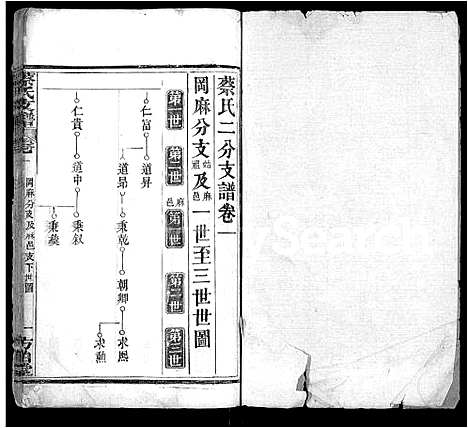 蔡氏二分支譜卷一
岡麻分支始祖及麻邑一世至三世世圖
第一世
第二世
麻邑
第一世
第二世
第三世
仁富
道昇
道昂
秉乾
朝卿
求熙
求勳
仁貴
道中
秉叙
秉彝
蔡氏支譜
卷一
岡麻分支及麻邑支下世圖
一